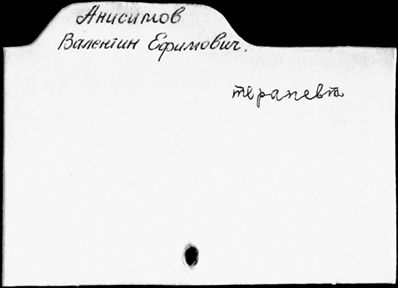 Анисимов
Валентин Ефимович.
терапевт